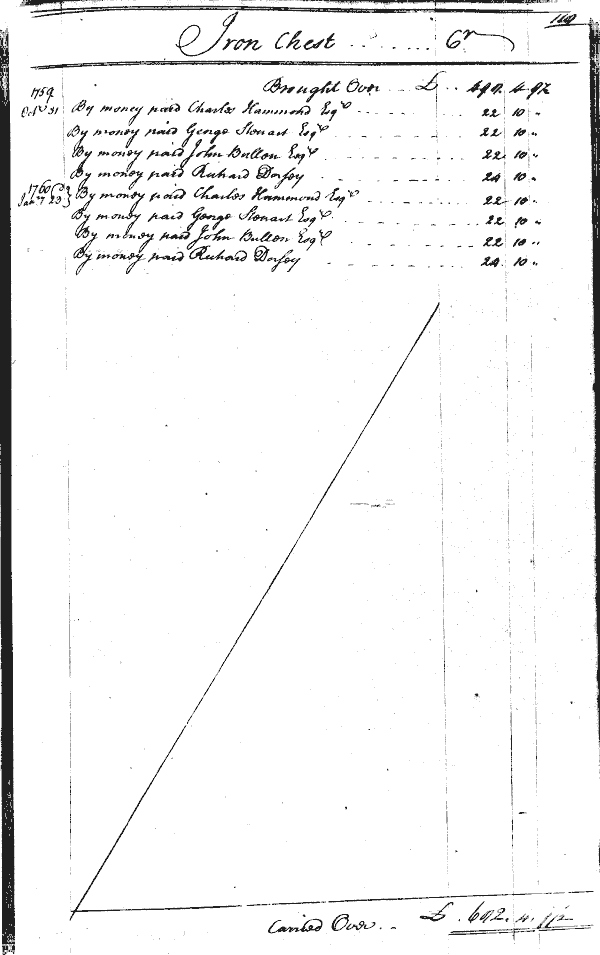 Iron Chest ........ Cr
Brought Over .. £ .. 499. 4. 9½
1759
Octr 31 By money paid Charles Hammond Esqr 22 10 "
By money paid George Steuart Esqr 22 10 "
By money paid John Bullen Esqr 22 10 "
By money paid Richard Dorsey 24 10 "
1760
Jany 23 By money paid Charles Hammond Esqr 22 10 "
By money paid George Steuart Esqr 22 10 "
By money paid John Bullen Esqr 22 10 "
By money paid Richard Dorsey 24 10 "
Carried Over .. £ . 692. 4.